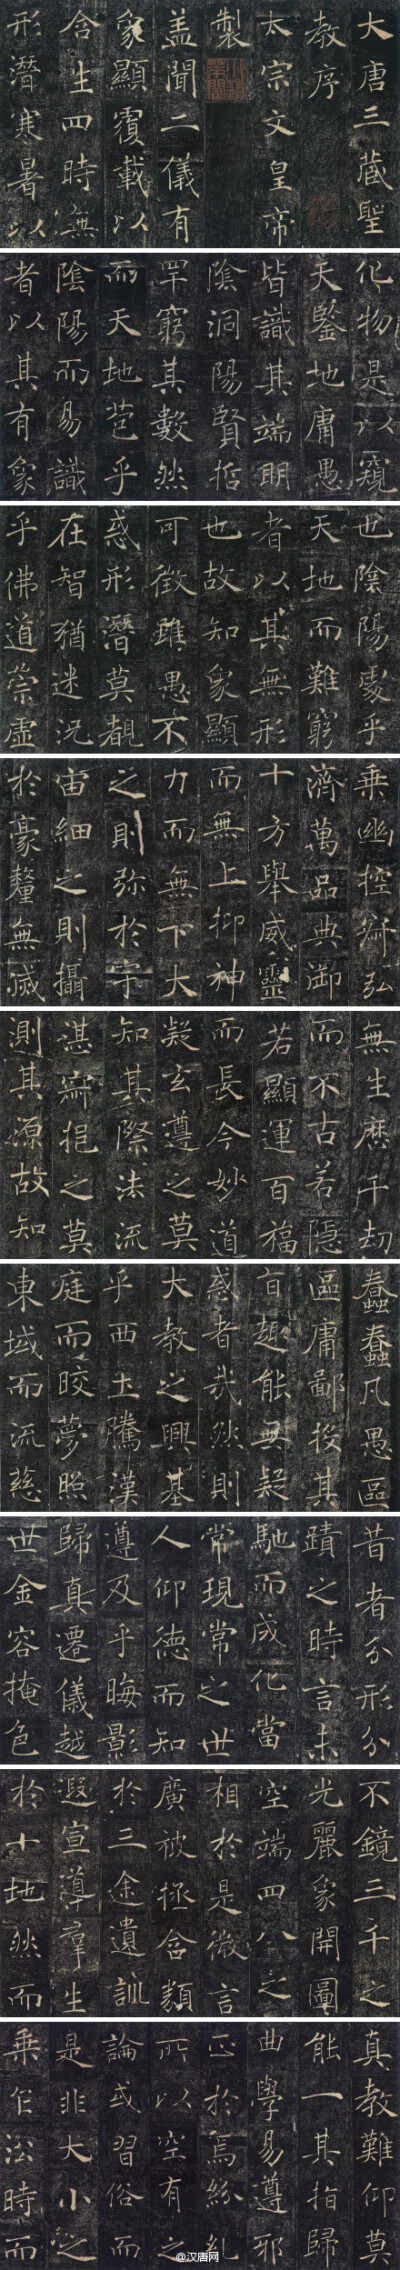 大唐三藏聖
教序
太宗文皇帝
製
盖聞二儀有
象顯覆載以
含生四時無
形潛寒暑以
化物是以窺
天鑒地庸愚
皆識其端明
陰洞陽賢哲
罕窮其數然
而天地苞乎
陰陽而易識
者以其有象
也陰陽處乎
天地而難窮
者以其無形
也故知象顯
可徵雖愚不
惑形潛莫覩
在智猶迷況
乎佛道崇虛
乘幽控寂弘
濟萬品典御
十方舉威靈
而無上抑神
力而無下大
之則弥於宇
宙細之則攝
於豪釐無滅
無生歷千劫
而不古若隱
若顯運百福
而長今妙道
凝玄遵之莫
知其際法流
湛寂挹之莫
測其源故知
蠢蠢凡愚區
區庸鄙投其
旨趣能無疑
惑者哉然則
大教之興基
乎西土騰漢
庭而皎夢照
東域而流慈
昔者分形分
蹟之時言未
馳而成化當
常現常之世
人仰德而知
遵及乎晦影
歸真遷儀越
世金容掩色
不鏡三千之
光麗象開圖
空端四八之
相於是微言
廣被拯含類
於三途遺訓
遐宣導羣生
於十地然而
真教難仰莫
能一其指歸
曲學易遵邪
正於焉紛糺
所以空有之
論或習俗而
是非大小之
乘乍沿時而
@汉唐网